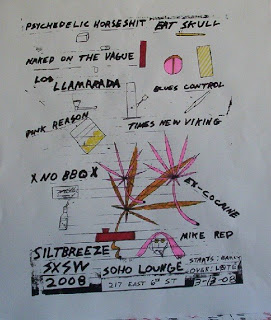 PSYCHEDELIC HORSESHIT EAT SKULL
NAKED ON THE VAGUE
LOS LLAMARADA
BLUES CONTROL
PINK REASON
TIMES NEW VIKING
X NO BBQ X
EX-COCAINE
MIKE REP
SILTBREEZE
SXSW
2008
SOHO LOUNGE
217 EAST 6th ST
STARTS: EARLY
OVER: LATE
3-12-08